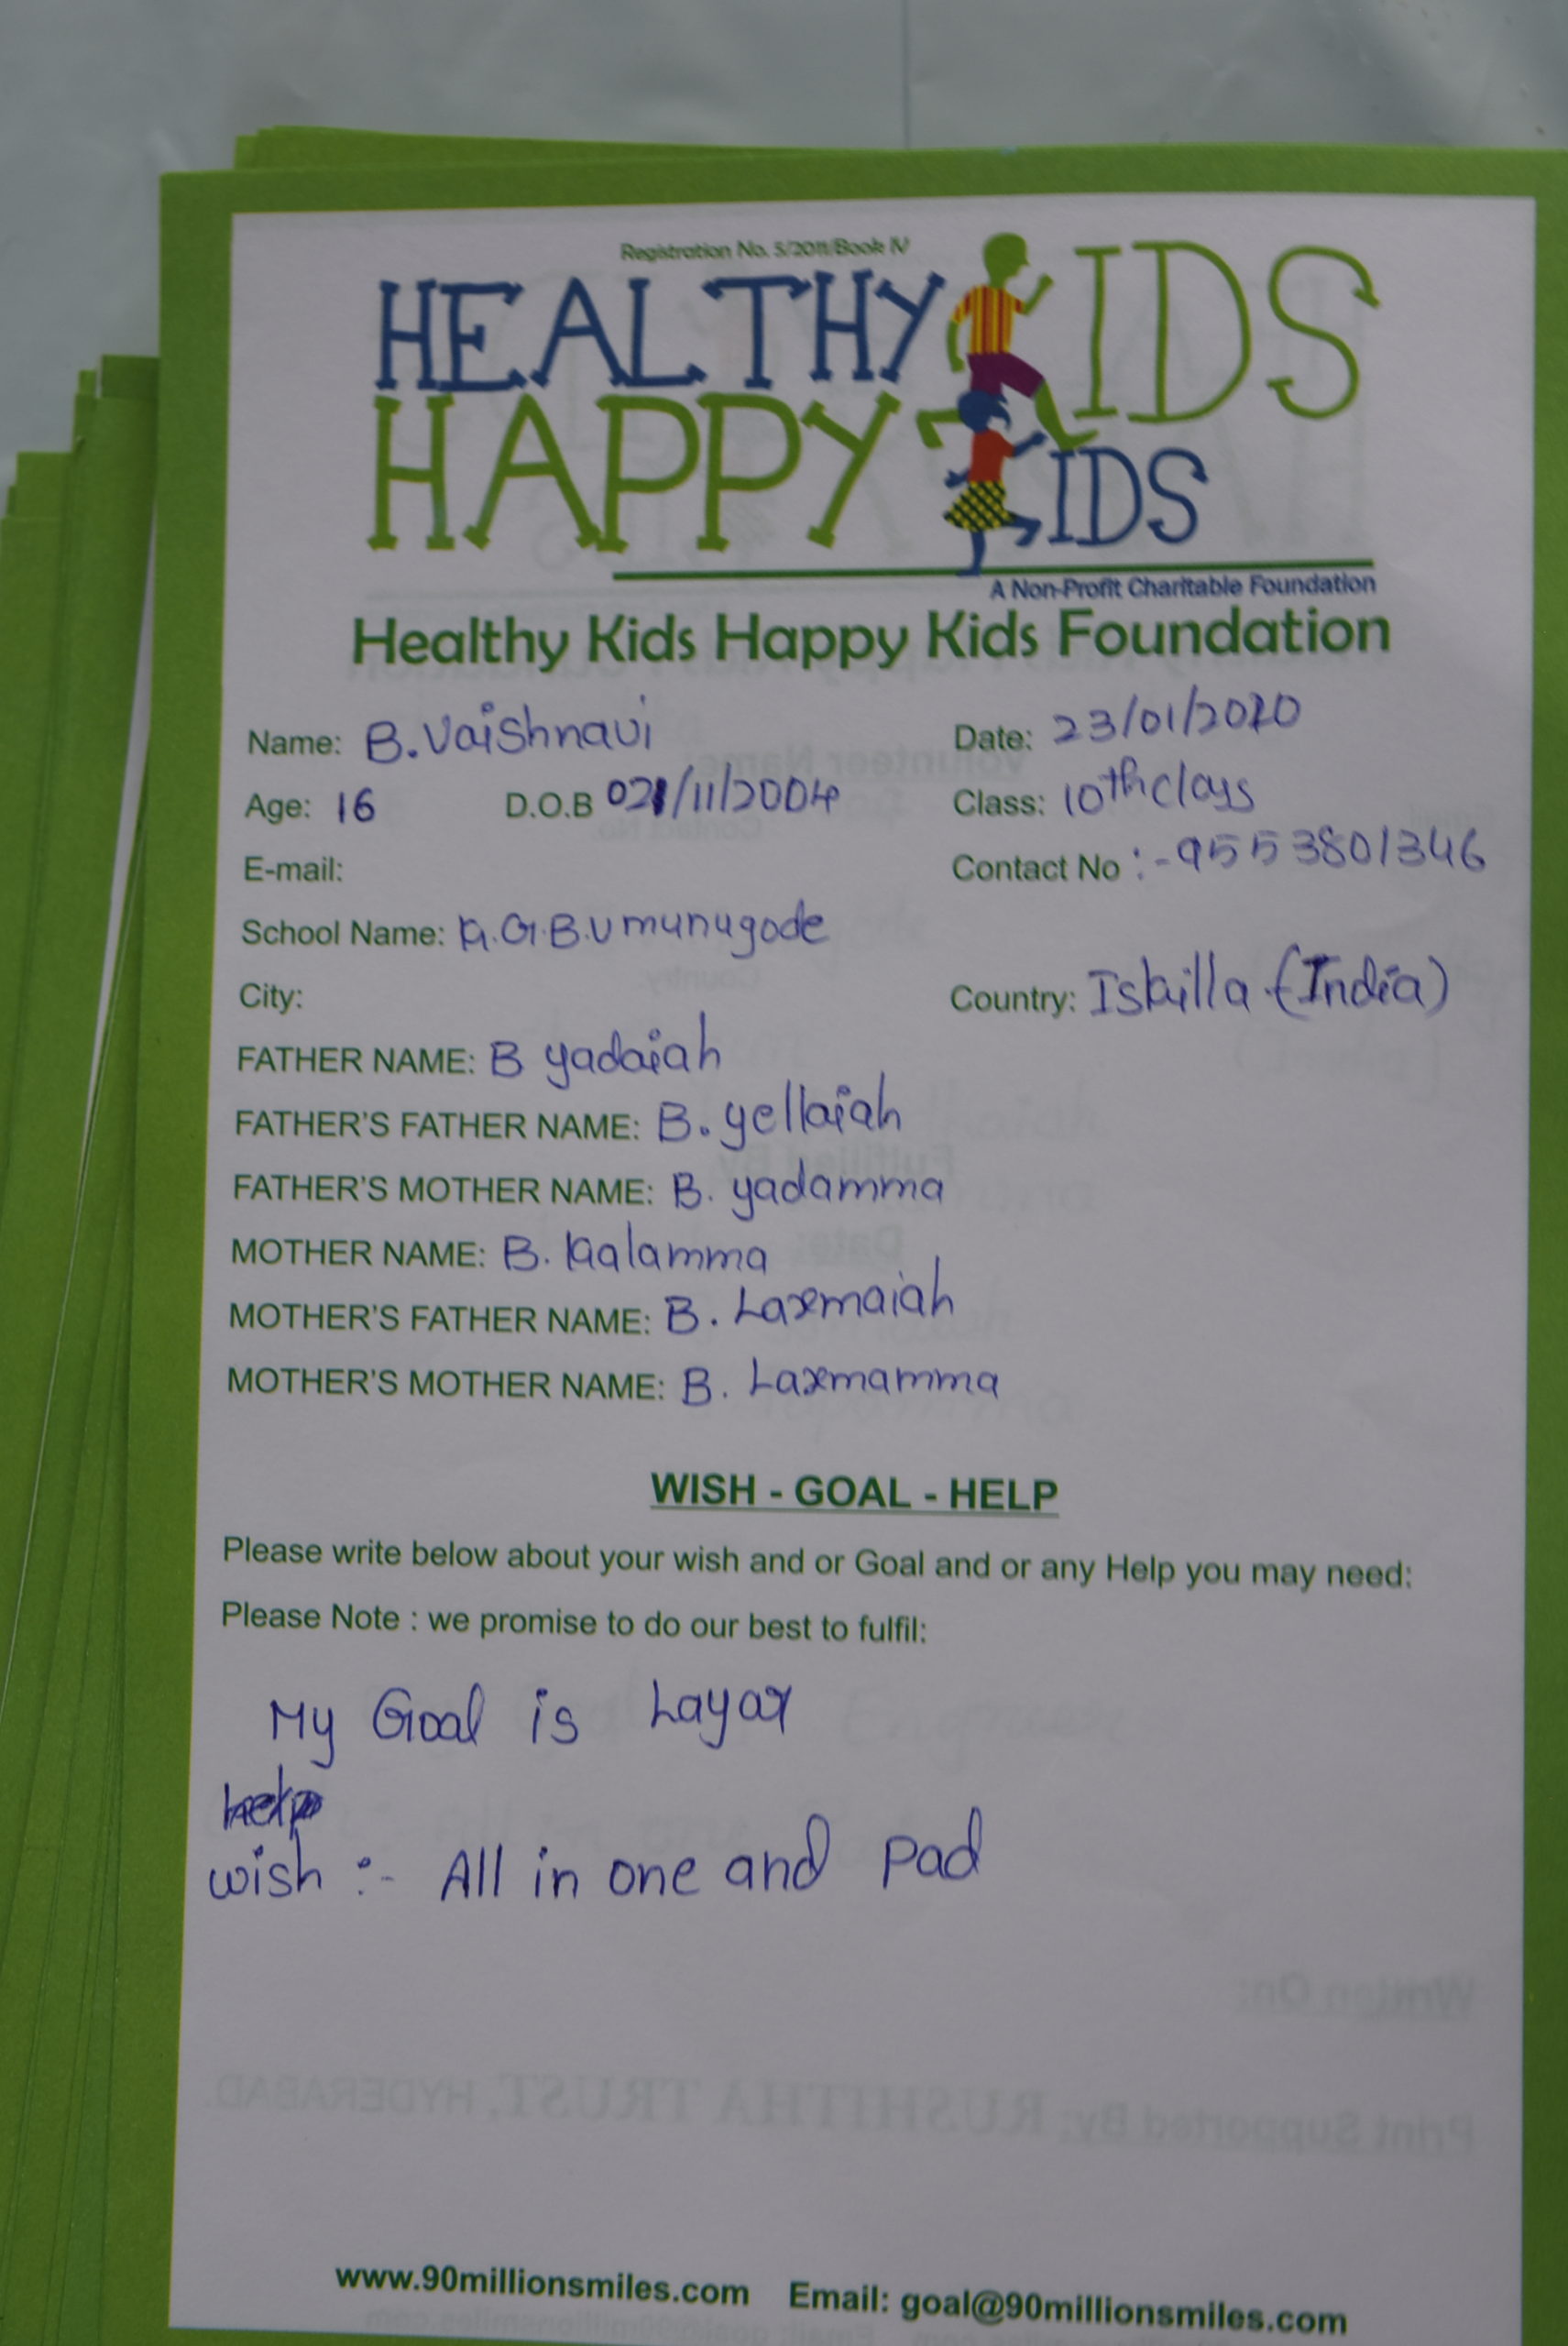 Registration No. 5/2011/Book IV
HEALTHY KIDS
HAPPY KIDS
A Non-Profit Charitable Foundation
Healthy Kids Happy Kids Foundation
Name: B. Vaishnavi Date: 23/01/2020
Age: 16 D.O.B 02/11/2004 Class: 10th class
E-mail: Contact No :- 9553801346
School Name: K.G.B.V munugode
City: Country: Iskilla (India)
FATHER NAME: B yadaiah
FATHER'S FATHER NAME: B. yellaiah
FATHER'S MOTHER NAME: B. yadamma
MOTHER NAME: B. Kalamma
MOTHER'S FATHER NAME: B. Laxmaiah
MOTHER'S MOTHER NAME: B. Laxmamma
WISH - GOAL - HELP
Please write below about your wish and or Goal and or any Help you may need:
Please Note : we promise to do our best to fulfil:
My Goal is Layar
help
wish :- All in one and Pad
Written On:
Print Supported By: RUSHITHA TRUST, HYDERABAD.
www.90millionsmiles.com Email: goal@90millionsmiles.com